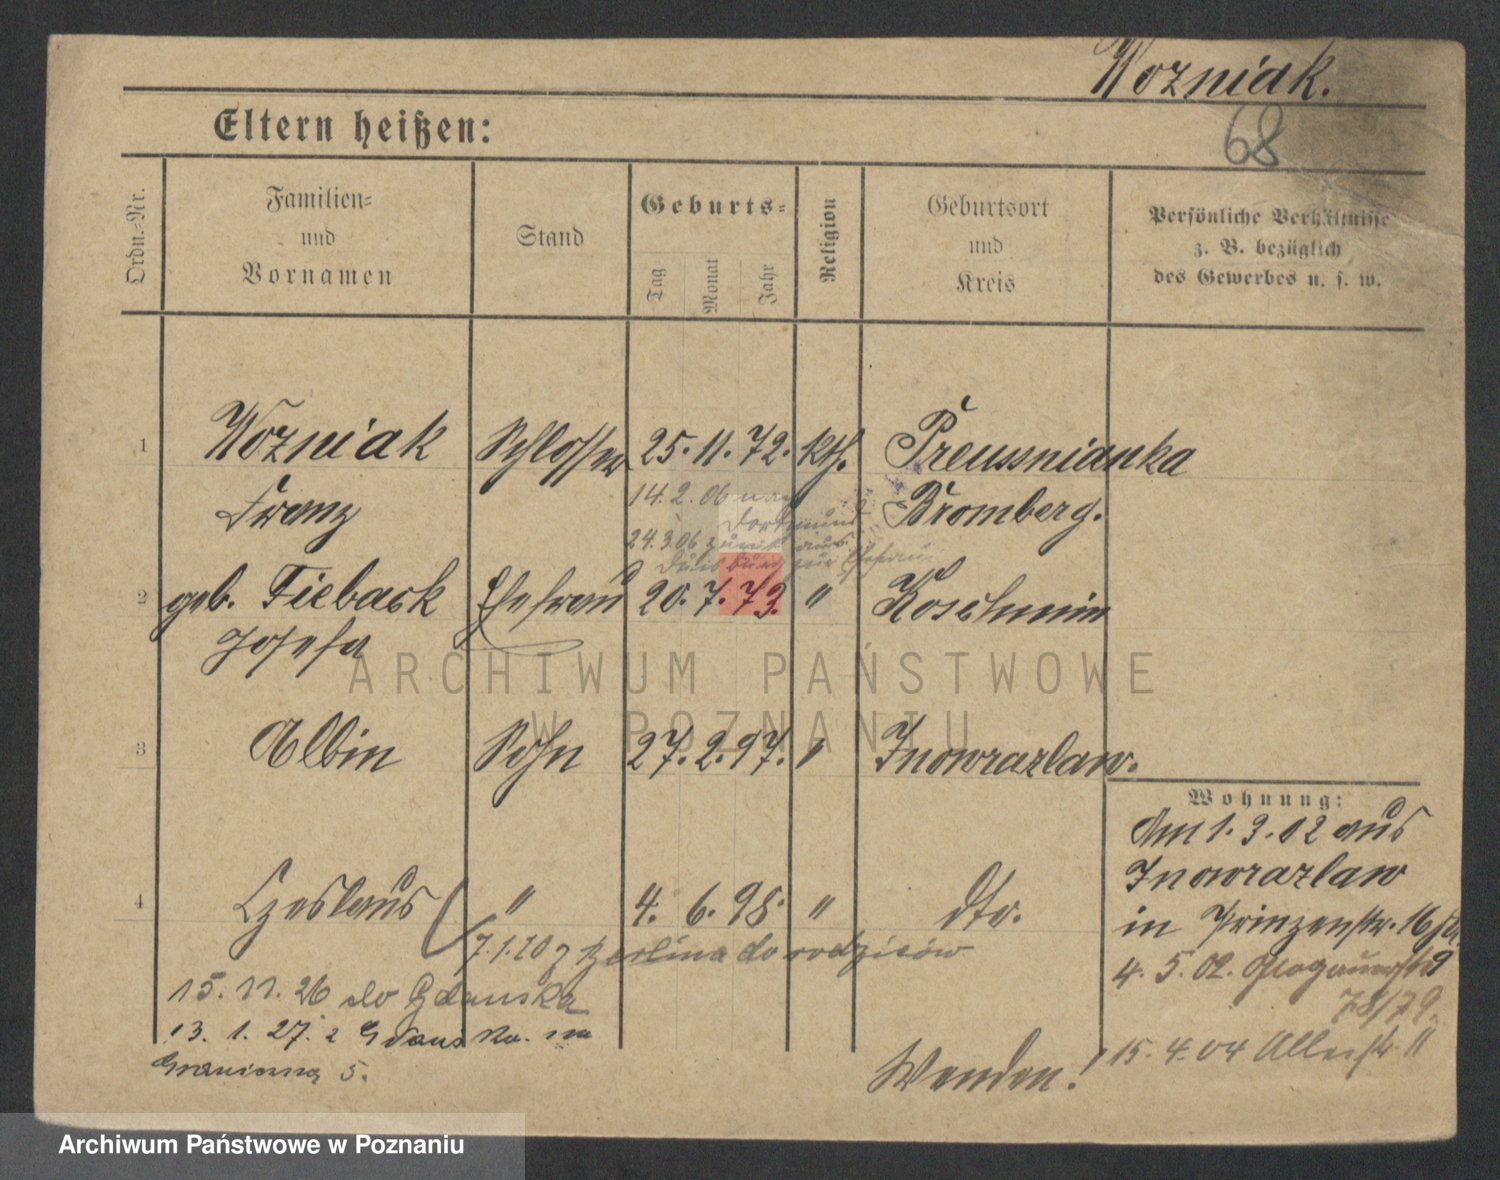 Wozniak.
68
Eltern heißen:
Ordn.-Nr.
Familien-
und
Vornamen
Stand
Geburts-
Tag
Monat
Jahr
Religion
Geburtsort
und
Kreis
Persönliche Verhältnisse
z. B. bezüglich
des Gewerbes u. s. w.
1 Wozniak Schlosser 25. 11. 72. kth. Preussnianka
Franz Bromberg.
14. 2. 06 nach
Dortmund
24.3.06 zurück aus
Duisburg zur Ehefrau
2 geb. Tieback Ehefrau 20. 7. 73. " Koschmin
Josefa
ARCHIWUM PAŃSTWOWE
W POZNANIU
3 Albin Sohn 27. 2. 97. " Inowrazlaw.
Wohnung:
Am 1. 3. 02 aus
Inowrazlaw
in Prinzenstr. 16
4. 5. 02. Glogauerstr
78/79.
15. 4. 04 Alleestr. 11
4 Czeslaus " 4. 6. 98. " dto.
7.1.20 z Berlina do rodziców
15. 11. 26 do Gdańska
13. 1. 27. z Gdańska. na
5.
Wenden!
Archiwum Państwowe w Poznaniu